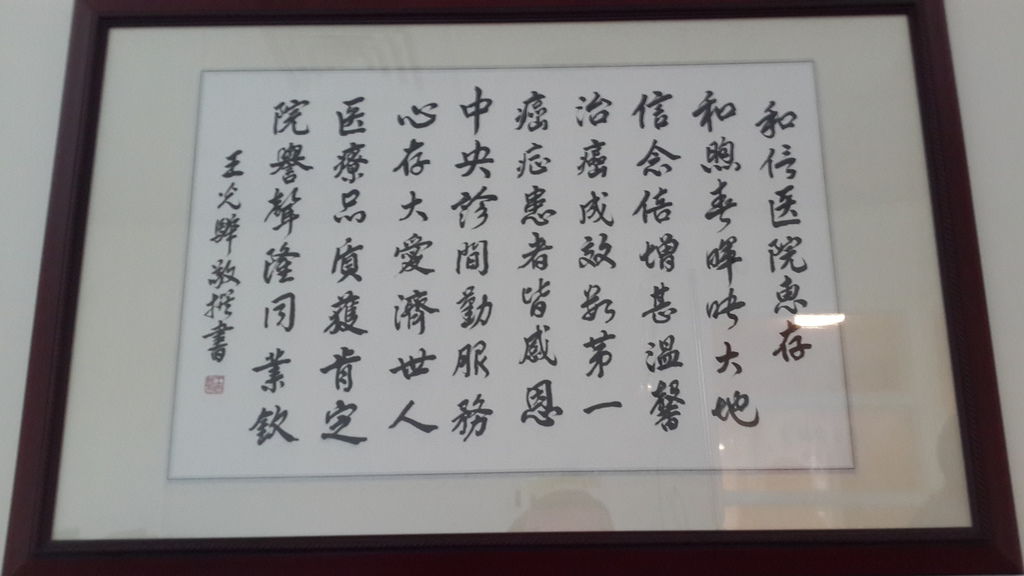 和信医院惠存
和煦春暉映大地
信念倍增甚溫馨
治癌成效數第一
癌症患者皆感恩
中央診間勤服務
心存大愛濟世人
医療品質獲肯定
院譽聲隆同業欽
王光驊敬撰書